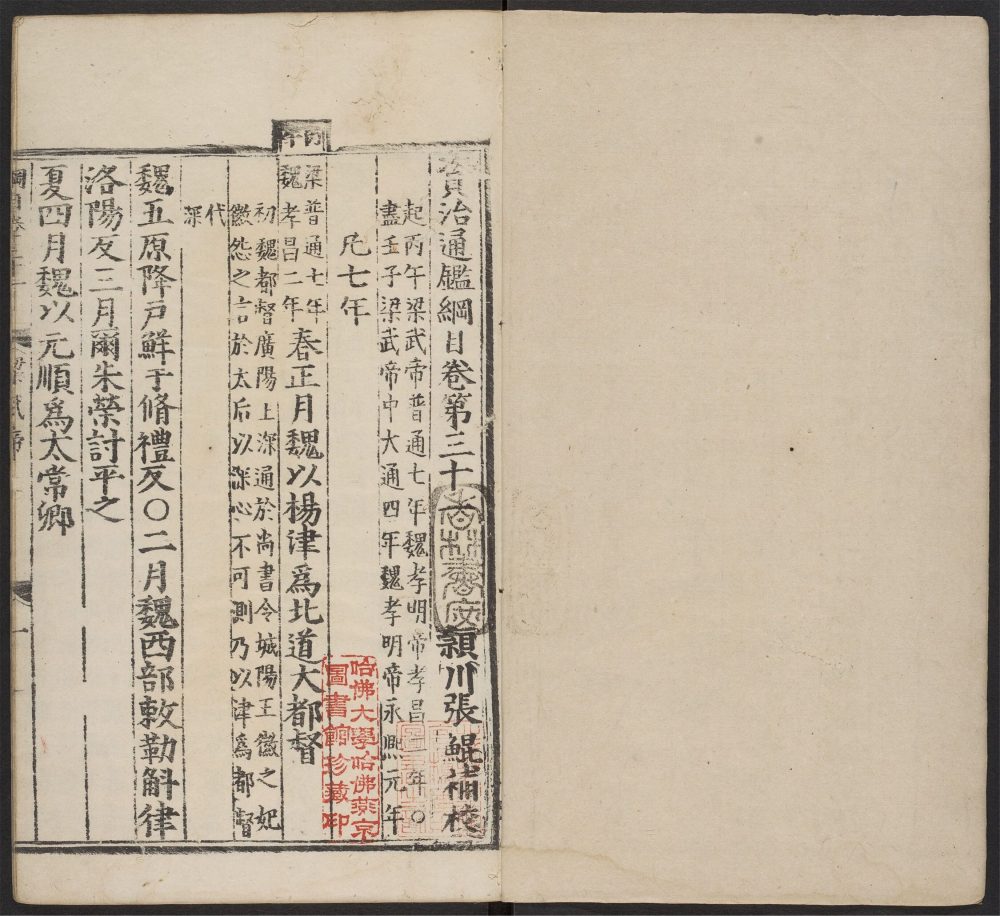 丙午
資治通鑑綱目卷第三十
頴川張鯤補校
起丙午梁武帝普通七年魏孝明帝孝昌二年〇
盡壬子梁武帝中大通四年魏孝明帝永熙元年
凡七年
梁普通七年
魏孝昌二年
春正月魏以楊津爲北道大都督
初魏都督廣陽上深通於尚書令城陽王徽之妃
徽怨之言於太后以深心不可測乃以津爲都督
代
深
魏五原降戸鮮于脩禮反〇二月魏西部敕勒斛律
洛陽反三月爾朱榮討平之
夏四月魏以元順爲太常卿
綱目卷三十一
梁武帝
一
哈佛大學哈佛燕京
圖書館珍藏印